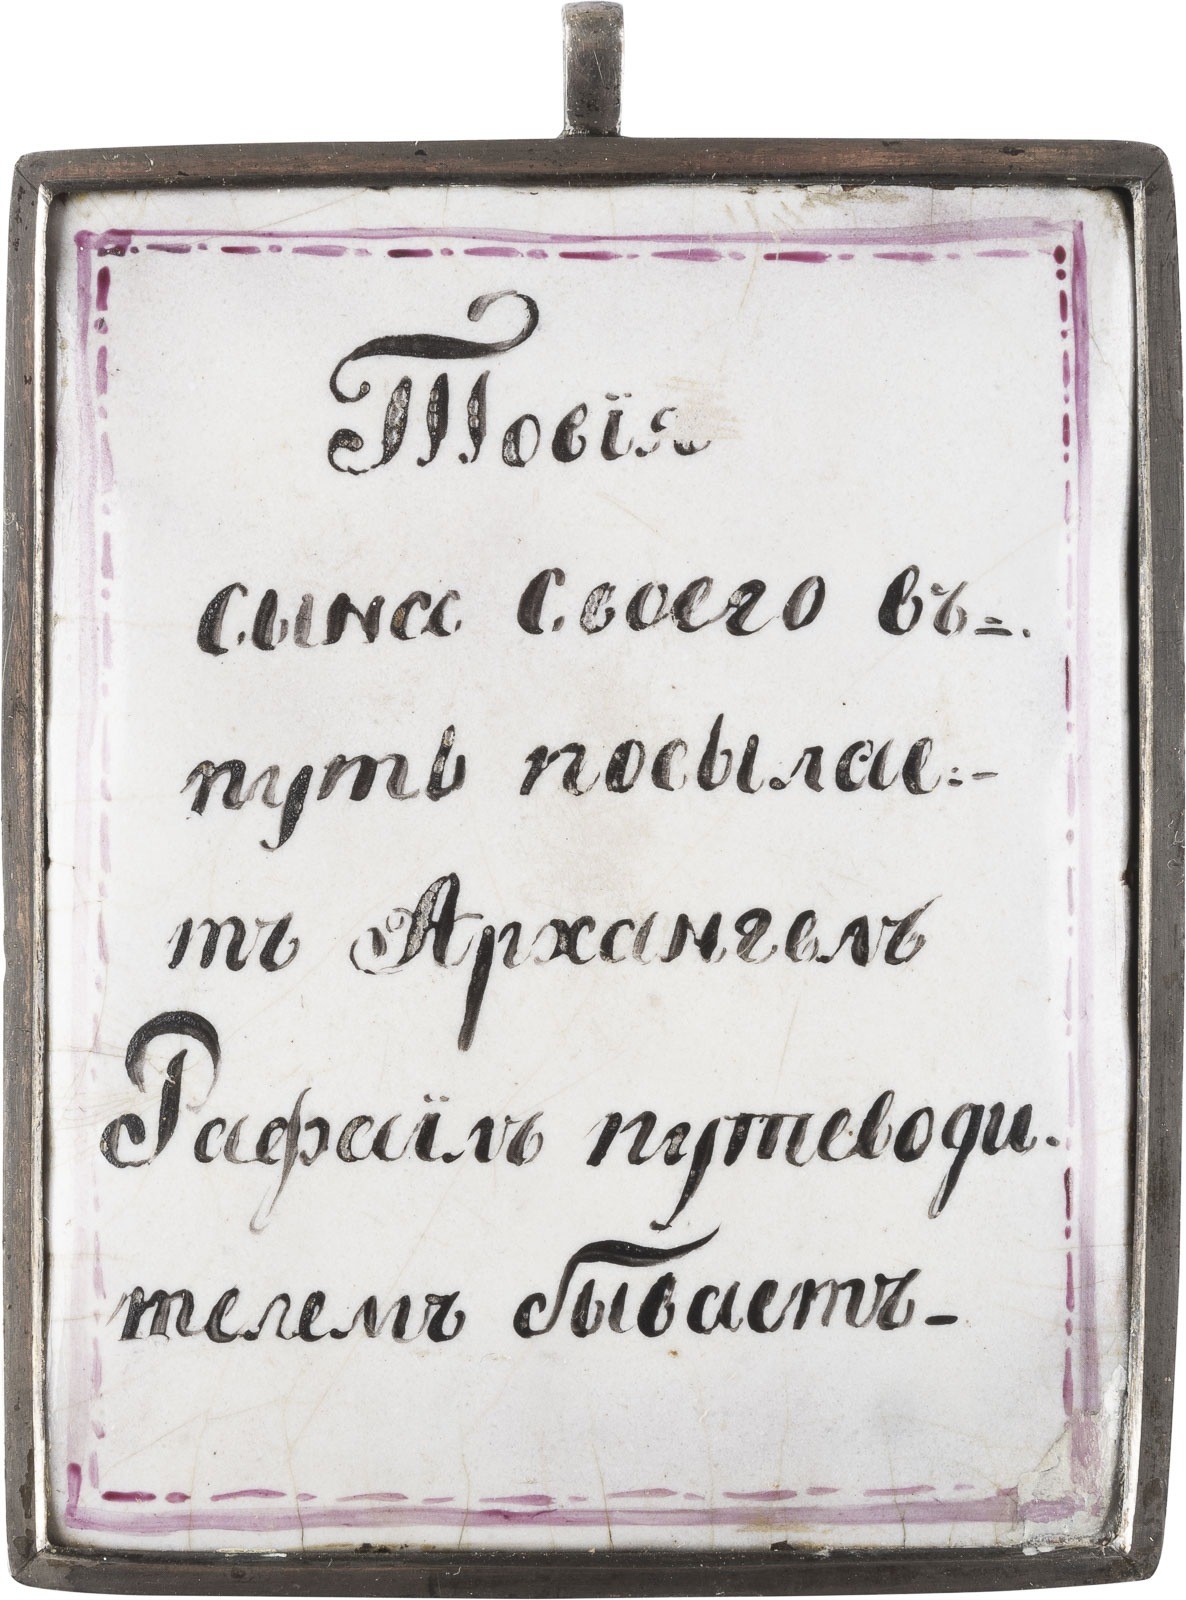 Товїя
сына Своего въ=.
путь посылае:-
тъ Архангелъ
Рафаїлъ путеводи.
телемъ бываетъ-